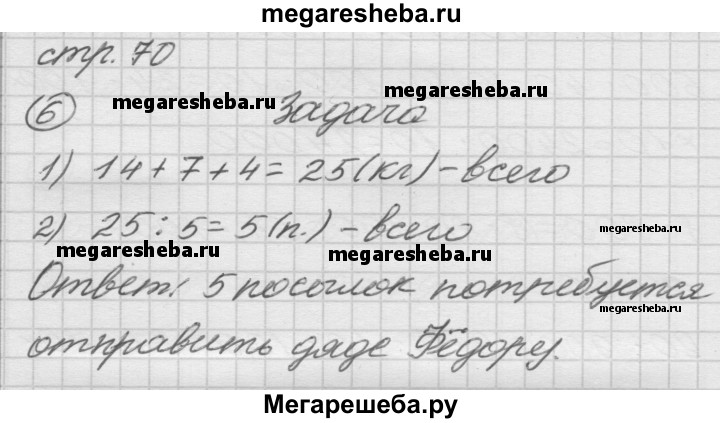 megaresheba.ru
стр. 70
6 megaresheba.ru Задача megaresheba.ru
1) 14 + 7 + 4 = 25 (кг) - всего
2) 25 : 5 = 5 (п.) - всего megaresheba.ru
megaresheba.ru megaresheba.ru
Ответ: 5 посылок потребуется
отправить дяде Фёдору. megaresheba.ru
Мегарешеба.ру